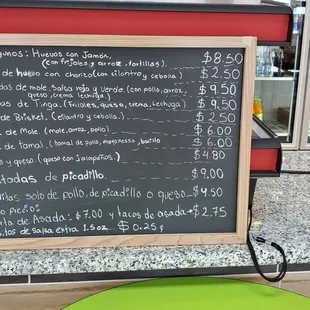 yunos: Huevos con Jamón,
(con frijoles y arroz, tortillas). $8.50
de huevo con chorizo (con cilantro y cebolla). $2.50
das de mole, Salsa roja y Verde. (con pollo, arroz,
queso, crema, lechuga) $9.50
as de Tinga. (Frijoles, queso, crema, Lechuga) $9.50
de Brisket. (cilantro y cebolla). $2.50
de Mole. (mole, arroz, pollo). $6.00
de tamal. (tamal de pollo, mayonessa, $6.00
y queso (queso con jalapeños). $4.80
stadas de picadillo. $9.00
ditas solo de pollo, de picadillo o queso $4.50
precio:
ta de Asada: $7.00 y tacos de asada $2.75
tos de salsa extra 1.5 oz $0.25 ¢